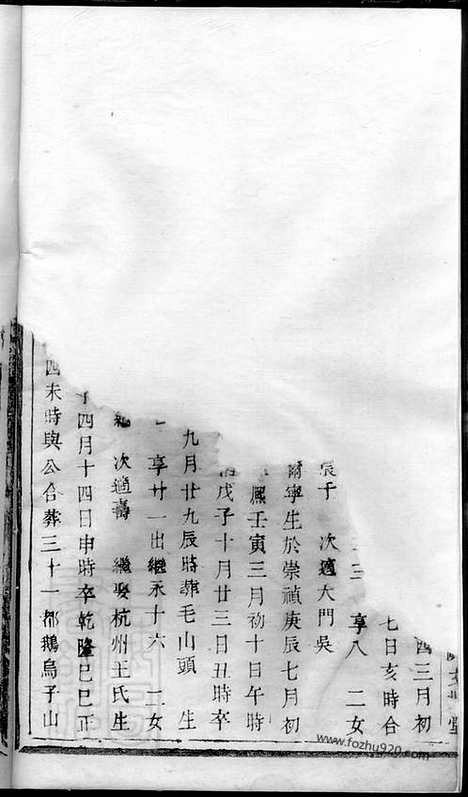 四三月初
七日亥時合
三 享八 二女
張子 次適大門吳
爾寧生於崇禎庚辰七月初
熙壬寅三月初十日午時
戊子十月廿三日丑時卒
九月廿九辰時葬毛山頭 生
享廿一出繼永十六 二女
次適壽 繼娶杭州王氏生
四月十四日申時卒乾隆己巳正
四未時與公合葬三十一都鵝烏子山
www.fozhu920.com